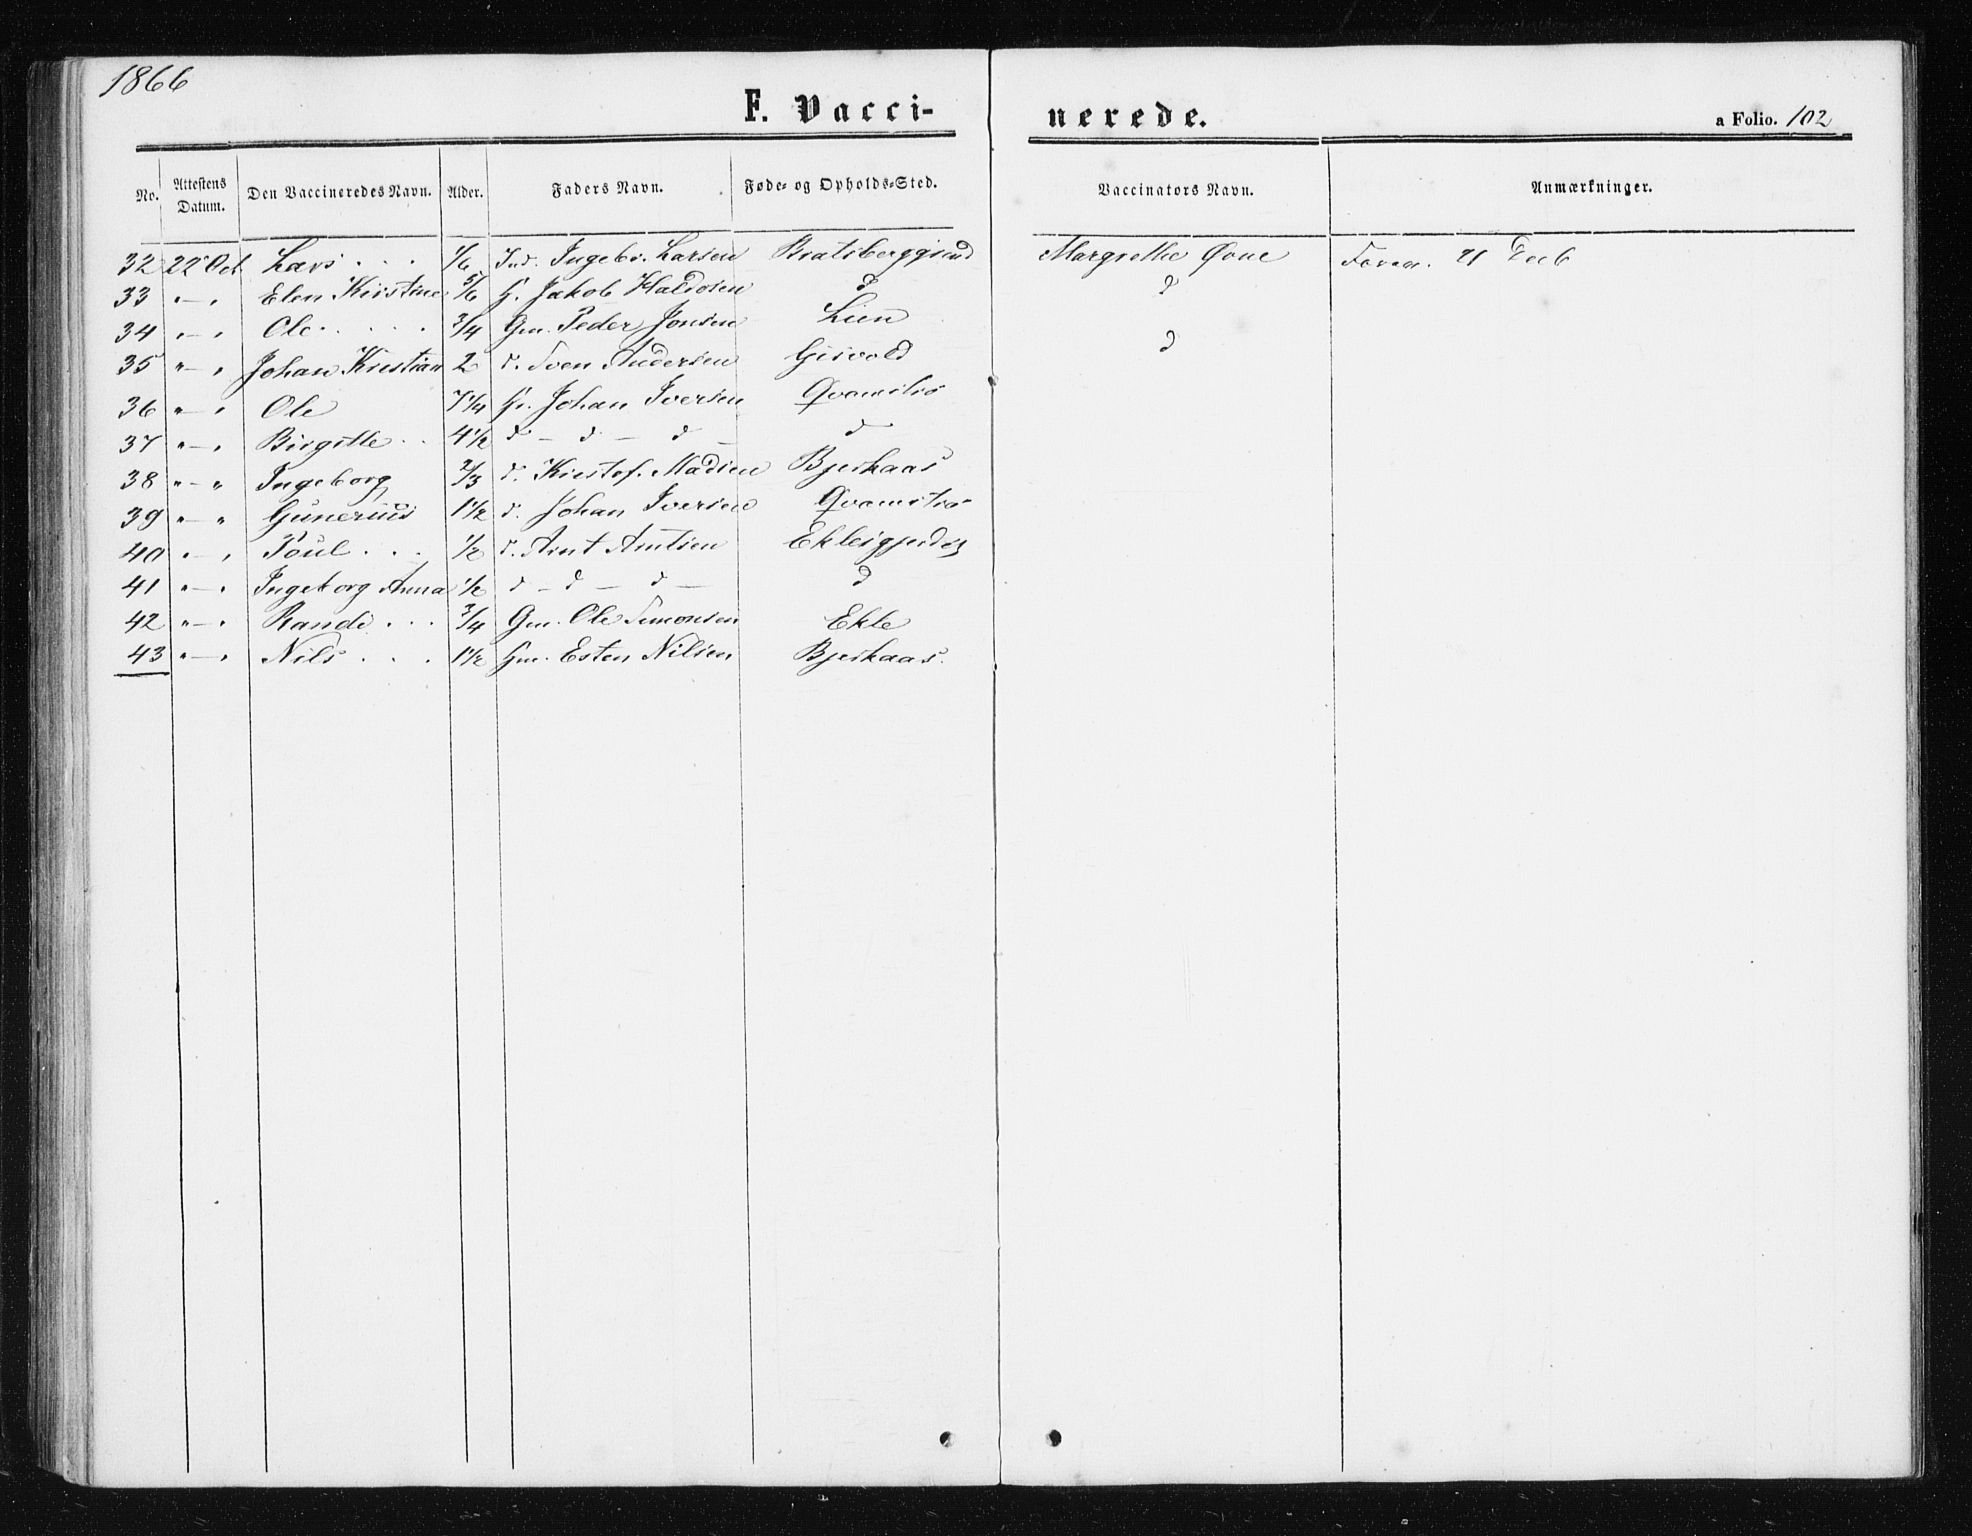 1866
F. Vacci-
nerede.
a Folio. 102
No. Attestens Datum. Den Vaccineredes Navn. Alder. Faders Navn. Føde- og Opholds-Sted. Vaccinators Navn. Anmærkninger.
32 22 Oct Lars . . . 1/6 Ind. Ingebr. Larsen Bratsberggrind Margrethe Øvne 21 Decb
33 " — " Elen Kirstine 5/6 G. Jakob Haldosen d d
34 " — " Ole . . . . 3/4 Gm. Peder Jonsen Lien d
35 " — " Johan Kristian 2 d. Sven Andersen Gisvold
36 " — " Ole 7 1/4 Johan Iversen Qvamslis
37 " — " Birgitte . . 4 1/2 d — d — d — d
38 " — " Ingeborg 2/3 d. Kristof. Madsen Bjerkaas
39 " — " Gunerius 1 1/2 d. Johan Iversen
40 " — " Poul . . . 1/2 d. Arnt Arntsen Eklesgjerdet
41 " — " Ingeborg Anna 1/2 d — d — d — d
42 " — " Randi . . . 3/4 Gm. Ole Simonsen Ekle
43 " — " Nils . . . 1 1/2 Gm. Esten Nilsen Bjerkaas.